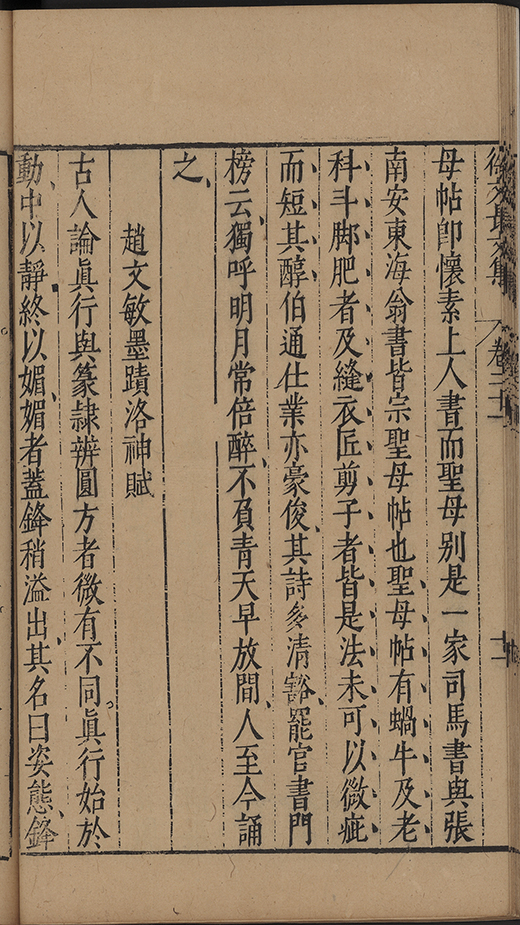 徐文長文集 卷二十一 十一
母帖卽懷素上人書而聖母别是一家司馬書與張
南安東海翁書皆宗聖母帖也聖母帖有蝸牛及老
科斗脚肥者及縫衣匠剪子者皆是法未可以微疵
而短其醇伯通仕業亦豪俊其詩多清豁罷官書門
榜云獨呼明月常倍醉不負青天早放間人至今誦
之
趙文敏墨蹟洛神賦
古人論眞行與篆隷辨圓方者微有不同眞行始於
動中以靜終以媚媚者蓋鋒稍溢出其名曰姿態鋒